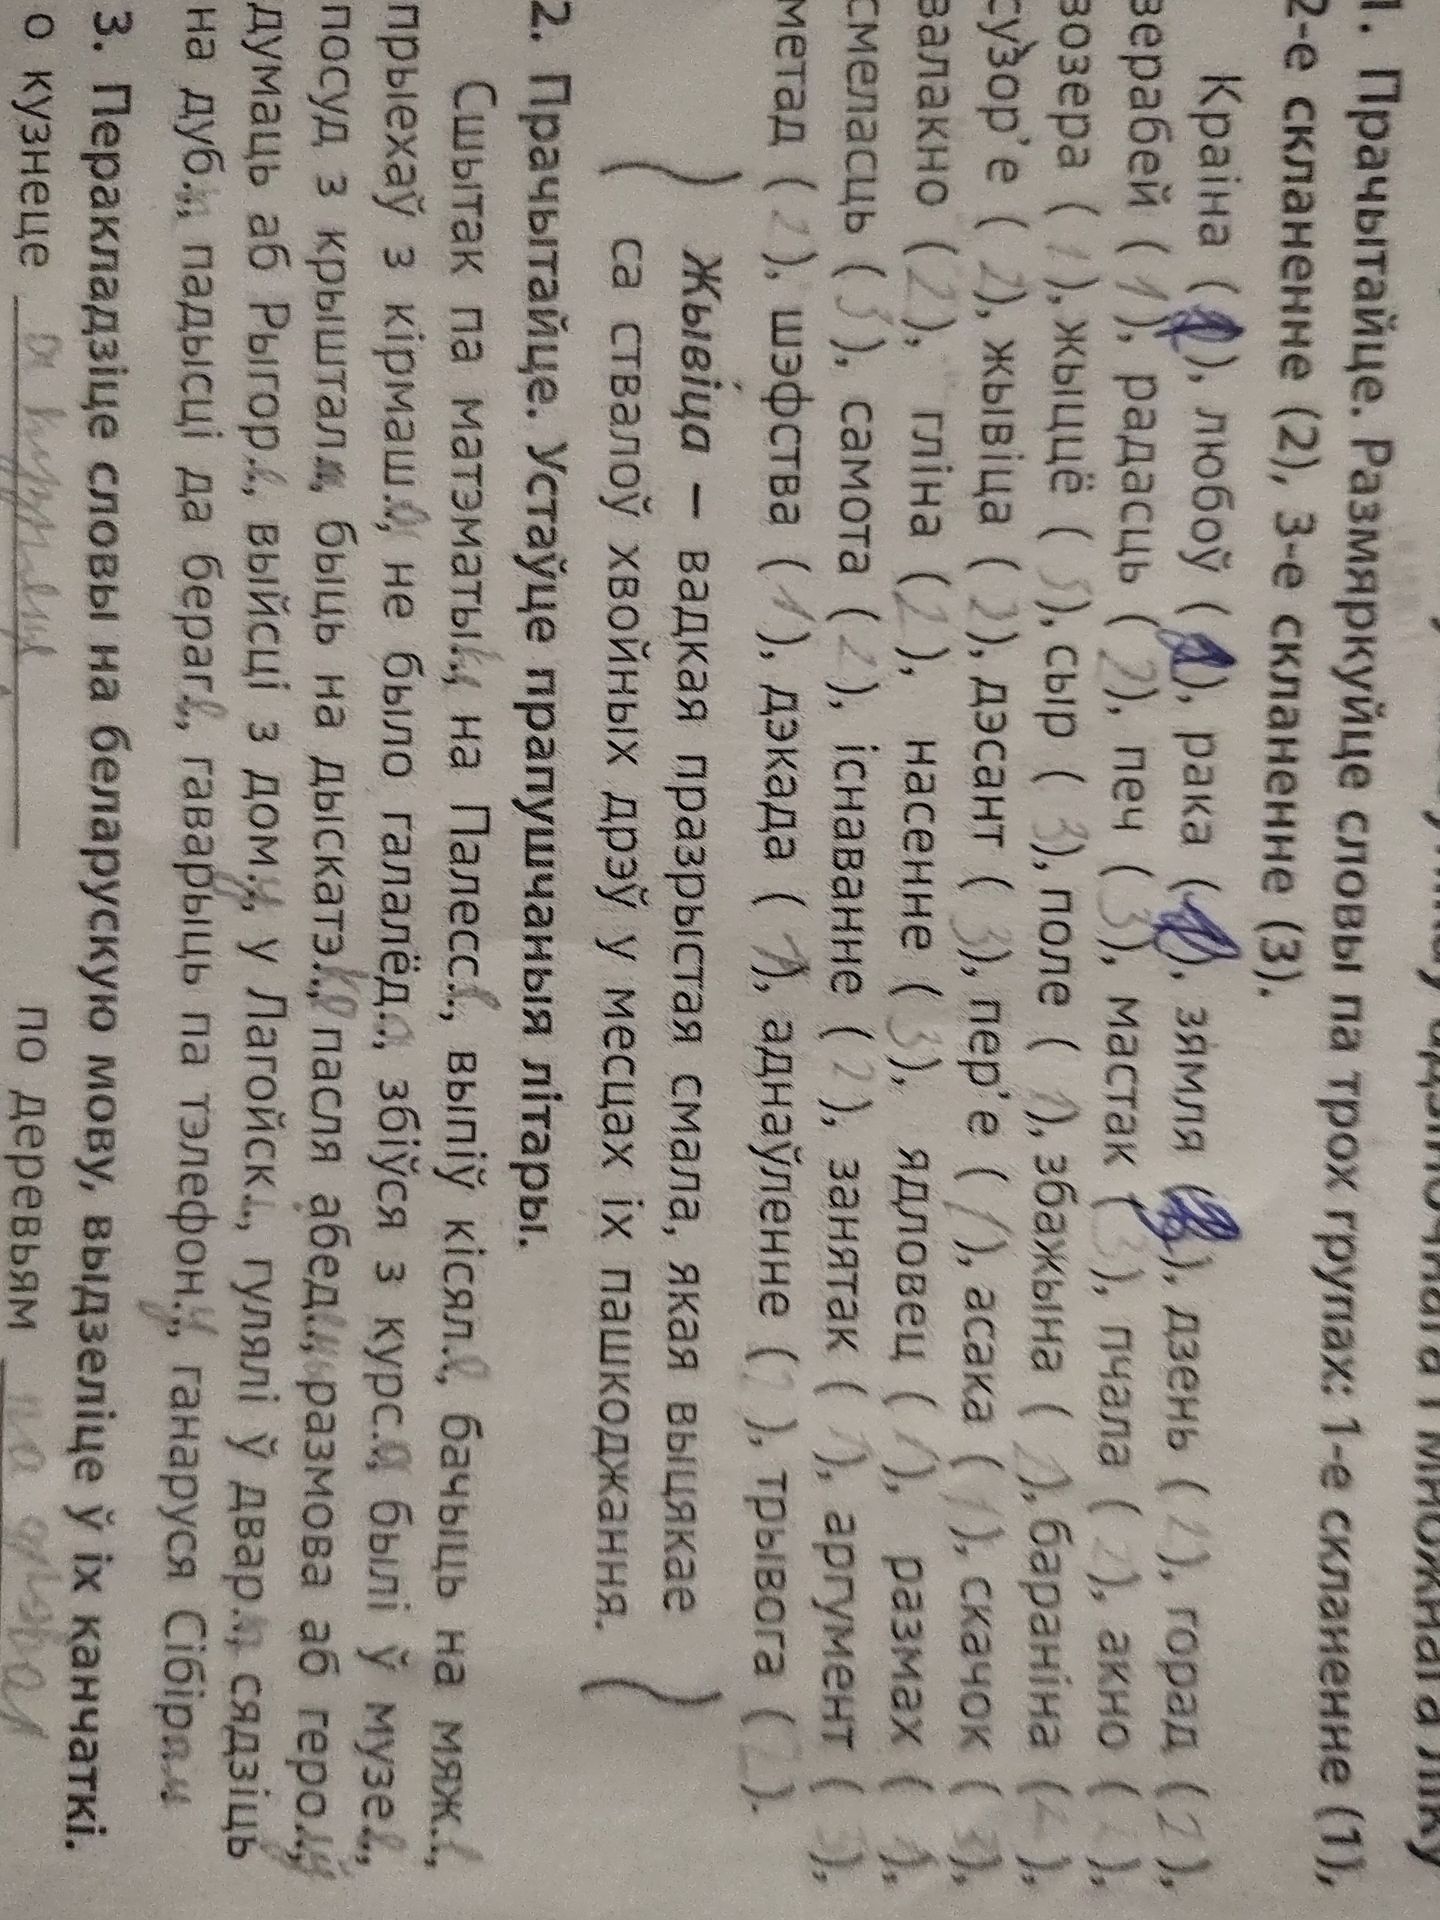 1. Прачытайце. Размяркуйце словы па трох групах: 1-е скланенне (1),
2-е скланенне (2), 3-е скланенне (3).
Краіна (1), любоў (1), рака (1), зямля ( ), дзень (2), горад (2),
верабей (1), радасць (2), печ (3), мастак (3), пчала (2), акно (1),
возера (1), жыццё (3), сыр (3), поле (1), збажына (1), бараніна (2),
сузор'е (2), жывіца (2), дэсант (3), пер'е (1), асака (1), скачок (3),
валакно (2), гліна (2), насенне (3), ядловец (1), размах (1),
смеласць (3), самота (2), існаванне (2), занятак (1), аргумент (3),
метад (2), шэфства (1), дэкада (1), аднаўленне (2), трывога (2).
Жывіца – вадкая празрыстая смала, якая выцякае
са ствалоў хвойных дрэў у месцах іх пашкоджання.
2. Прачытайце. Устаўце прапушчаныя літары.
Сшытак па матэматы.., на Палесс.., выпіў кісял.., бачыць на мяж..,
прыехаў з кірмаш.., не было галалёд.., збіўся з курс.., былі ў музе..,
посуд з крышталю.., быць на дыскатэ.., пасля абед.., размова аб геро..,
думаць аб Рыгор.., выйсці з дом.., у Лагойск.., гулялі ў двар.., сядзіць
на дуб.., падысці да бераг.., гаварыць па тэлефон.., ганаруся Сібір..
3. Перакладзіце словы на беларускую мову, выдзеліце ў іх канчаткі.
о кузнеце
по деревьям па